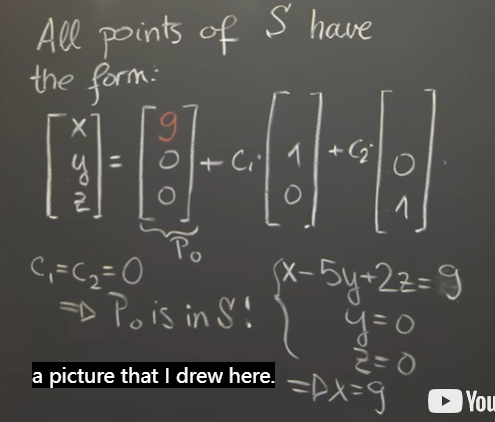 All points of S have
the form:
[x y z] = [9 0 0] + C₁· [1 0] + C₂· [0 1].
P₀
C₁=C₂=0
⇒ P₀ is in S!
{x-5y+2z=9
y=0
z=0
⇒x=9
a picture that I drew here.
You